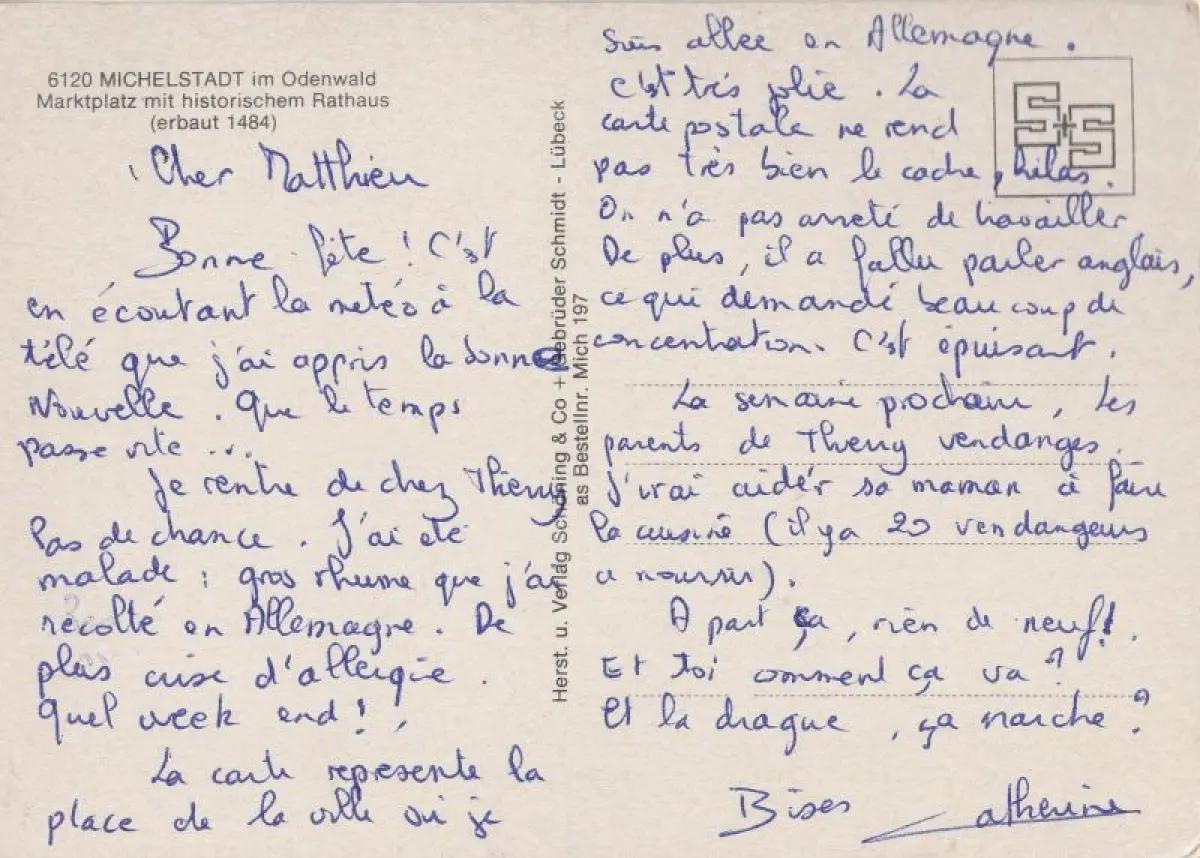 6120 MICHELSTADT im Odenwald
Marktplatz mit historischem Rathaus
(erbaut 1484)
Cher Matthieu
Bonne fête ! C'est
en écoutant la météo à la
télé que j'ai appris la bonne
Nouvelle. Que le temps
passe vite ...
Je rentre de chez Thierry
Pas de chance. J'ai été
malade : gros rhume que j'ai
récolté en Allemagne. De
plus crise d'allergie.
Quel week end !
La carte représente la
place de la ville où je
Herst. u. Verlag Schöning & Co + Gebrüder Schmidt - Lübeck
as Bestellnr. Mich 197
suis allée en Allemagne.
C'est très jolie. La
carte postale ne rend
pas très bien le cadre, hélas.
On n'a pas arreté de travailler
De plus, il a fallu parler anglais,
ce qui demandé beaucoup de
concentration. C'est épuisant.
La semaine prochaine, les
parents de Thierry vendanges.
J'irai aider sa maman à faire
la cuisine (il y a 20 vendangeurs
a nourrir).
A part ça, rien de neuf!
Et toi comment ça va ?
Et la drague, ça marche ?
Bises Catherine